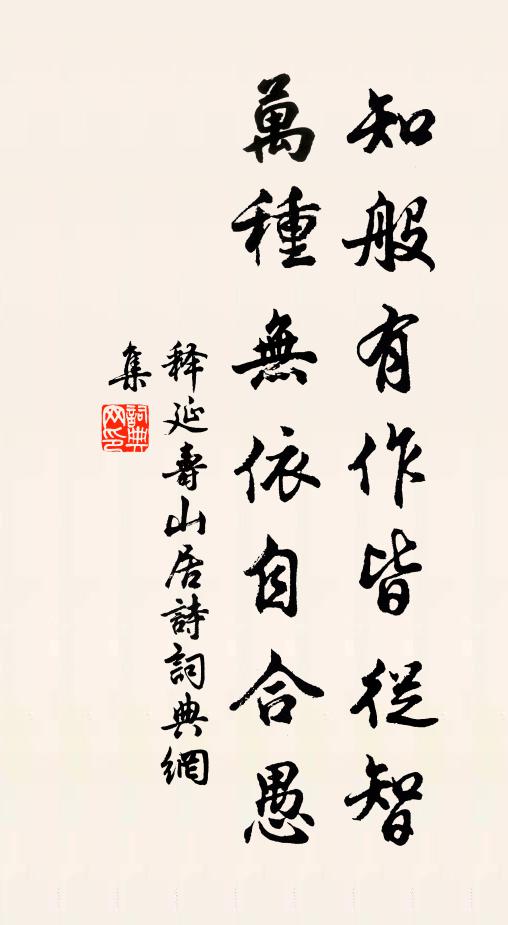 知般有作皆從智
萬種無依自合愚
释延壽山居詩詞典網
集
詞典網印